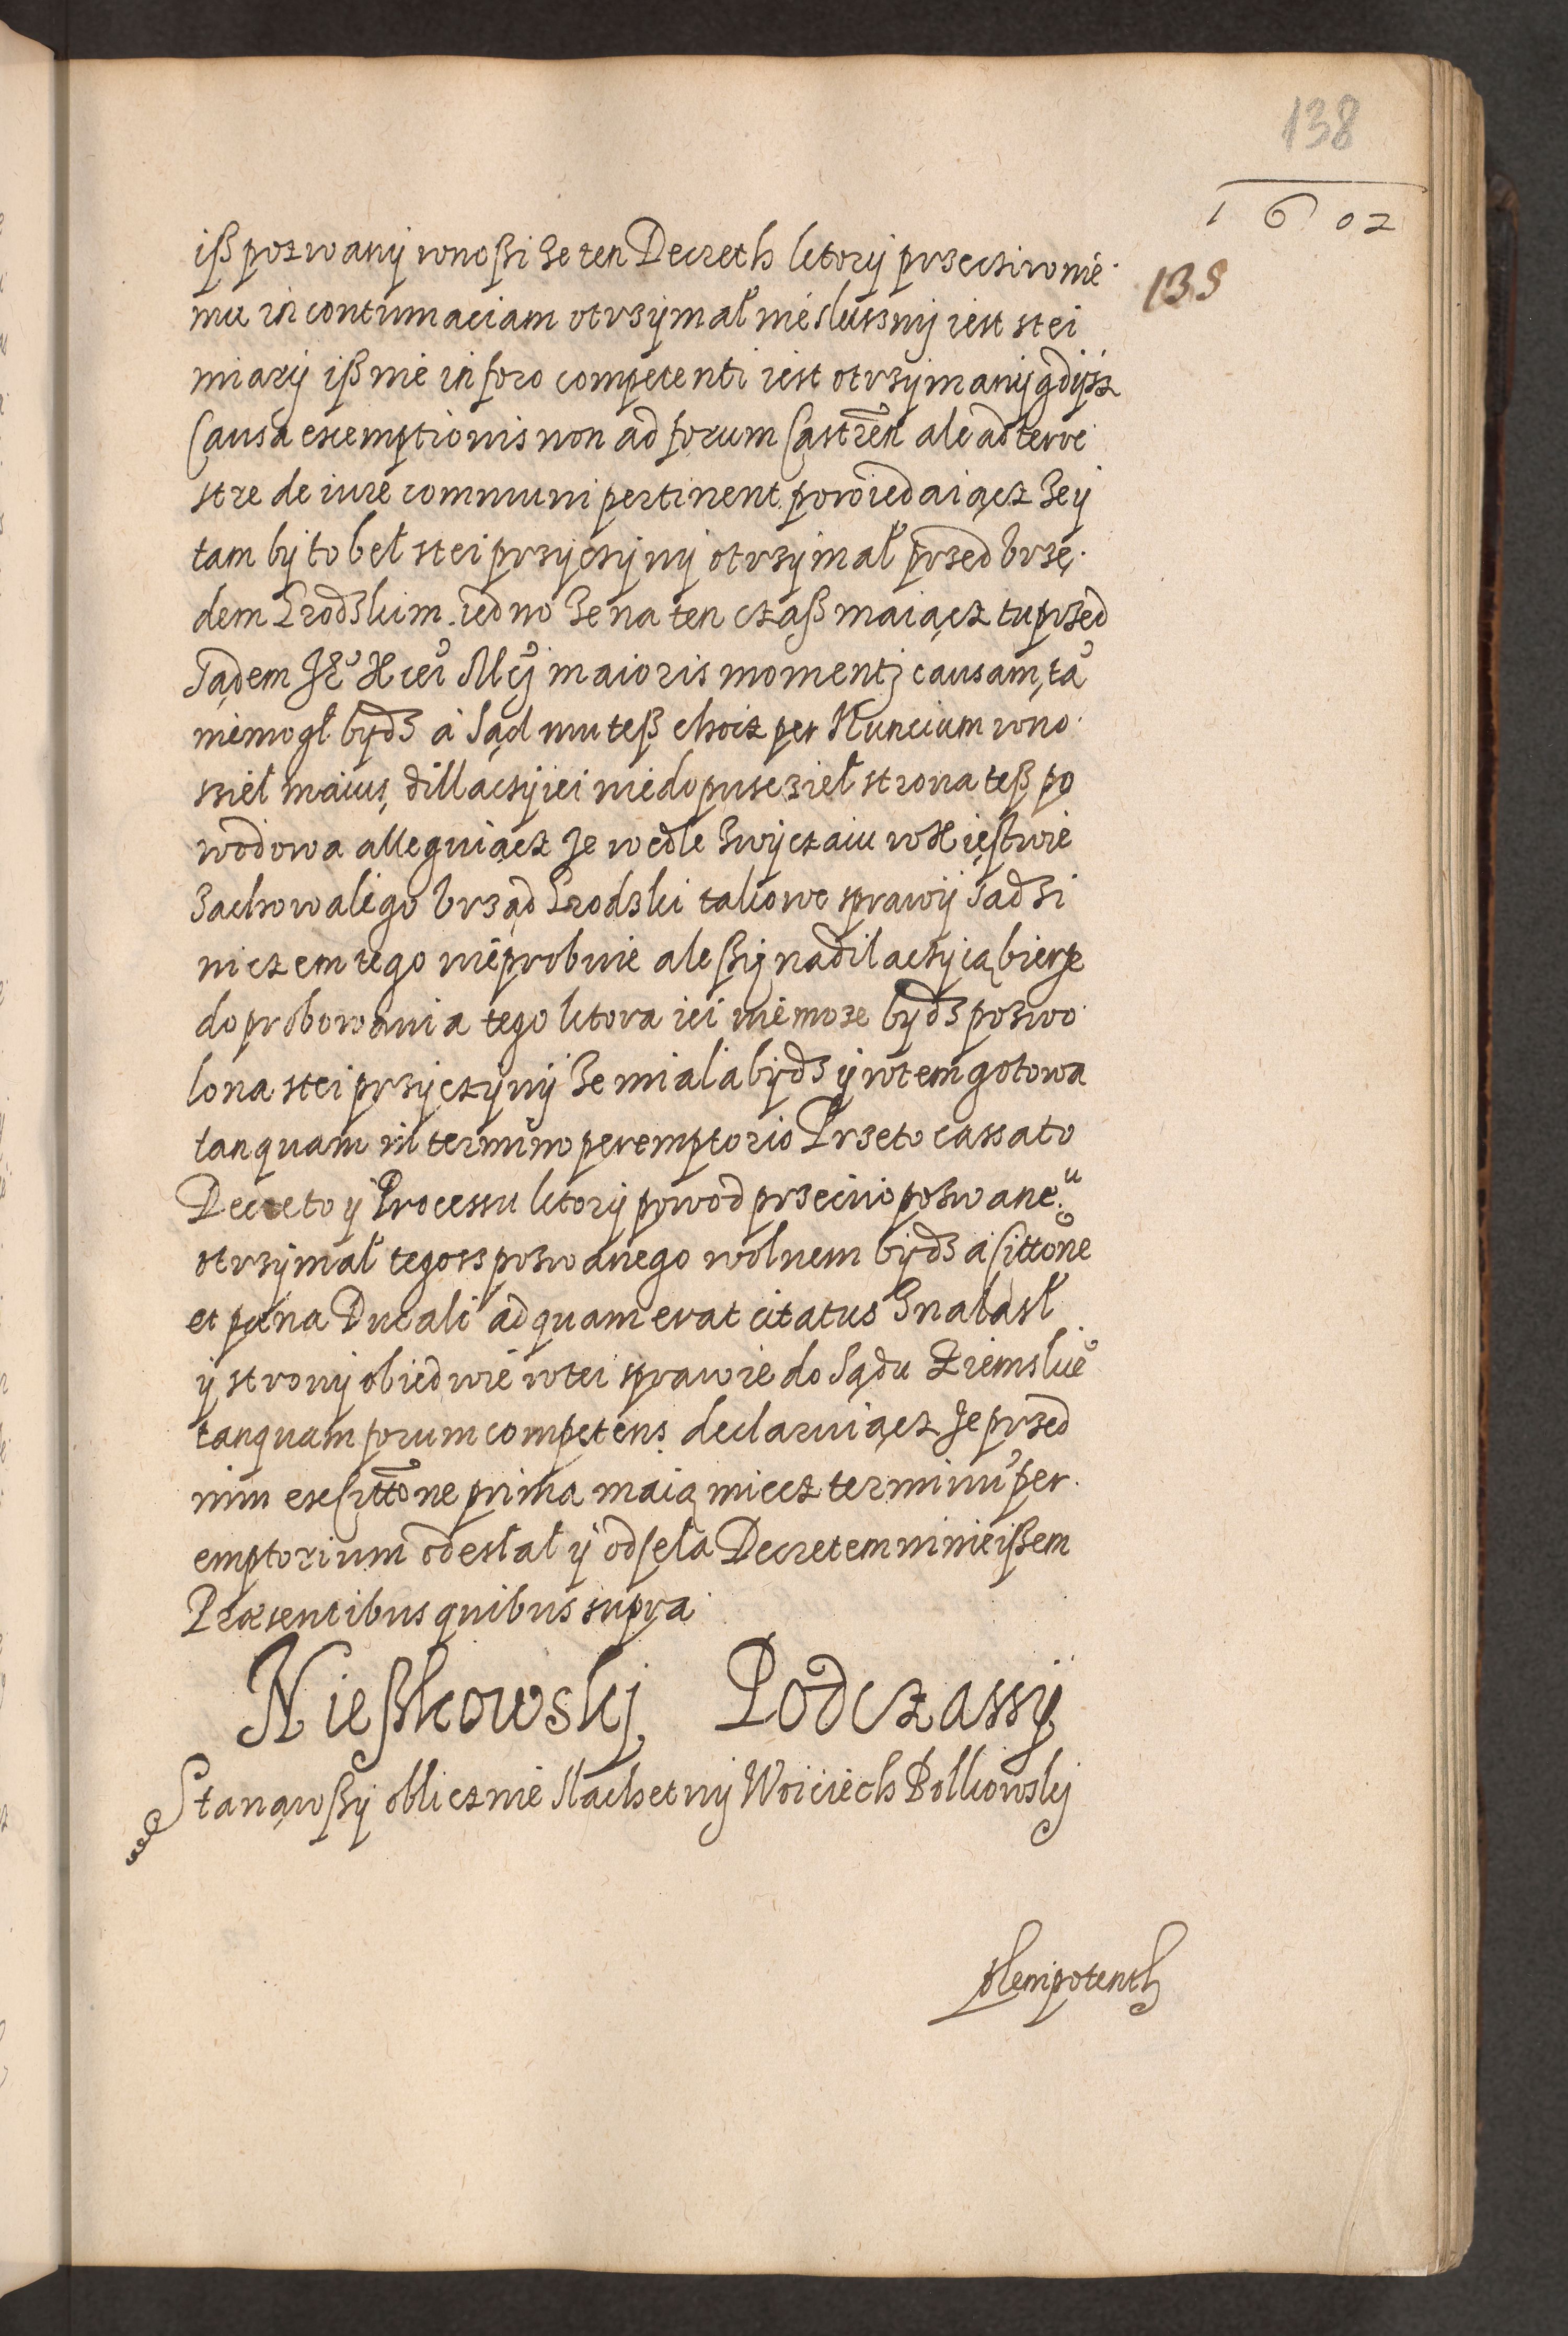 138
1602
138
iß pozwany wnoßi że ten Decreth ktory przecziwnie
mu in contumaciam otrzymał niesluszny iest stei
miary iß nie in foro competenti iest otrzymany gdysz
Causa exemptionis non ad forum Castren̄ ale ad terre
stre de iure communi pertinent powiedaiącz że y
tam by to beł stei przyczyny otrzymał przed Vrzę
dem Grodzkim iedno że na ten czaß maiącz tu przed
Sądem maioris momentj causam, ta
niemogł bydz a Sąd mu teß choiz per Nuncium wno
sziel maius, dillacyiei niedopusczieł strona teß po
wodowa alleguiącz że wedle zwyczaiu wXięstwie
zachowałego Vrząd Grodzki takowe sprawy sadzi
niczem tego nieprobuie ale ßię nadilaczyią bierze
do probowania tego ktora iei niemoze bydz pozwo
lona stei przyczyny ze miala bydz y wtem gotowa
tanquam in termino peremptorio Przeto cassato
Decreto y Processu ktory powod przeciwo pozwane
otrzymał tegosz pozwanego wolnem bydz a Citt̄one
et pœna Ducali ad quam erat citatus Znalasł
y strony obiedwie wtei sprawie do Sądu Ziemskie
tanquam forum competens declaruiącz że przed
nim ex Citt̄one prima maią miecz terminu per
emptorium odesłał y odseła Decretem ninieißem
Præsentibus quibus supra
Nießkowskj Podczassy
Stanąwßy oblicznie Slachetny Woiciech Bolkowskj
plenipotenth